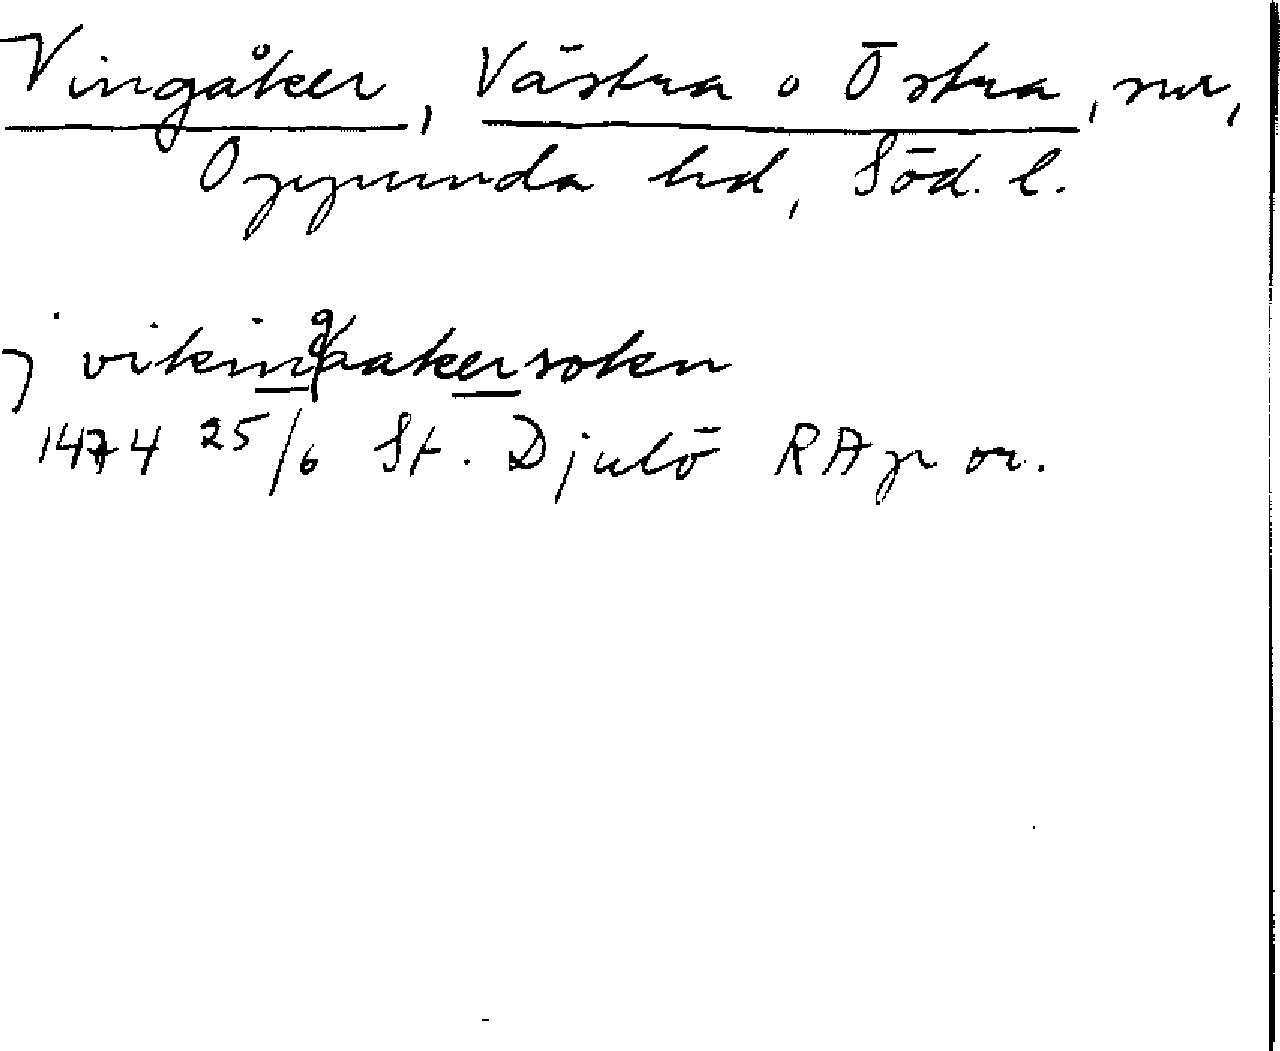 Vingåker, Västra o Östra, snr,
Oppunda hd, Söd. l.
j vikingakersokn
1474 25/6 St. Djulö RAp or.